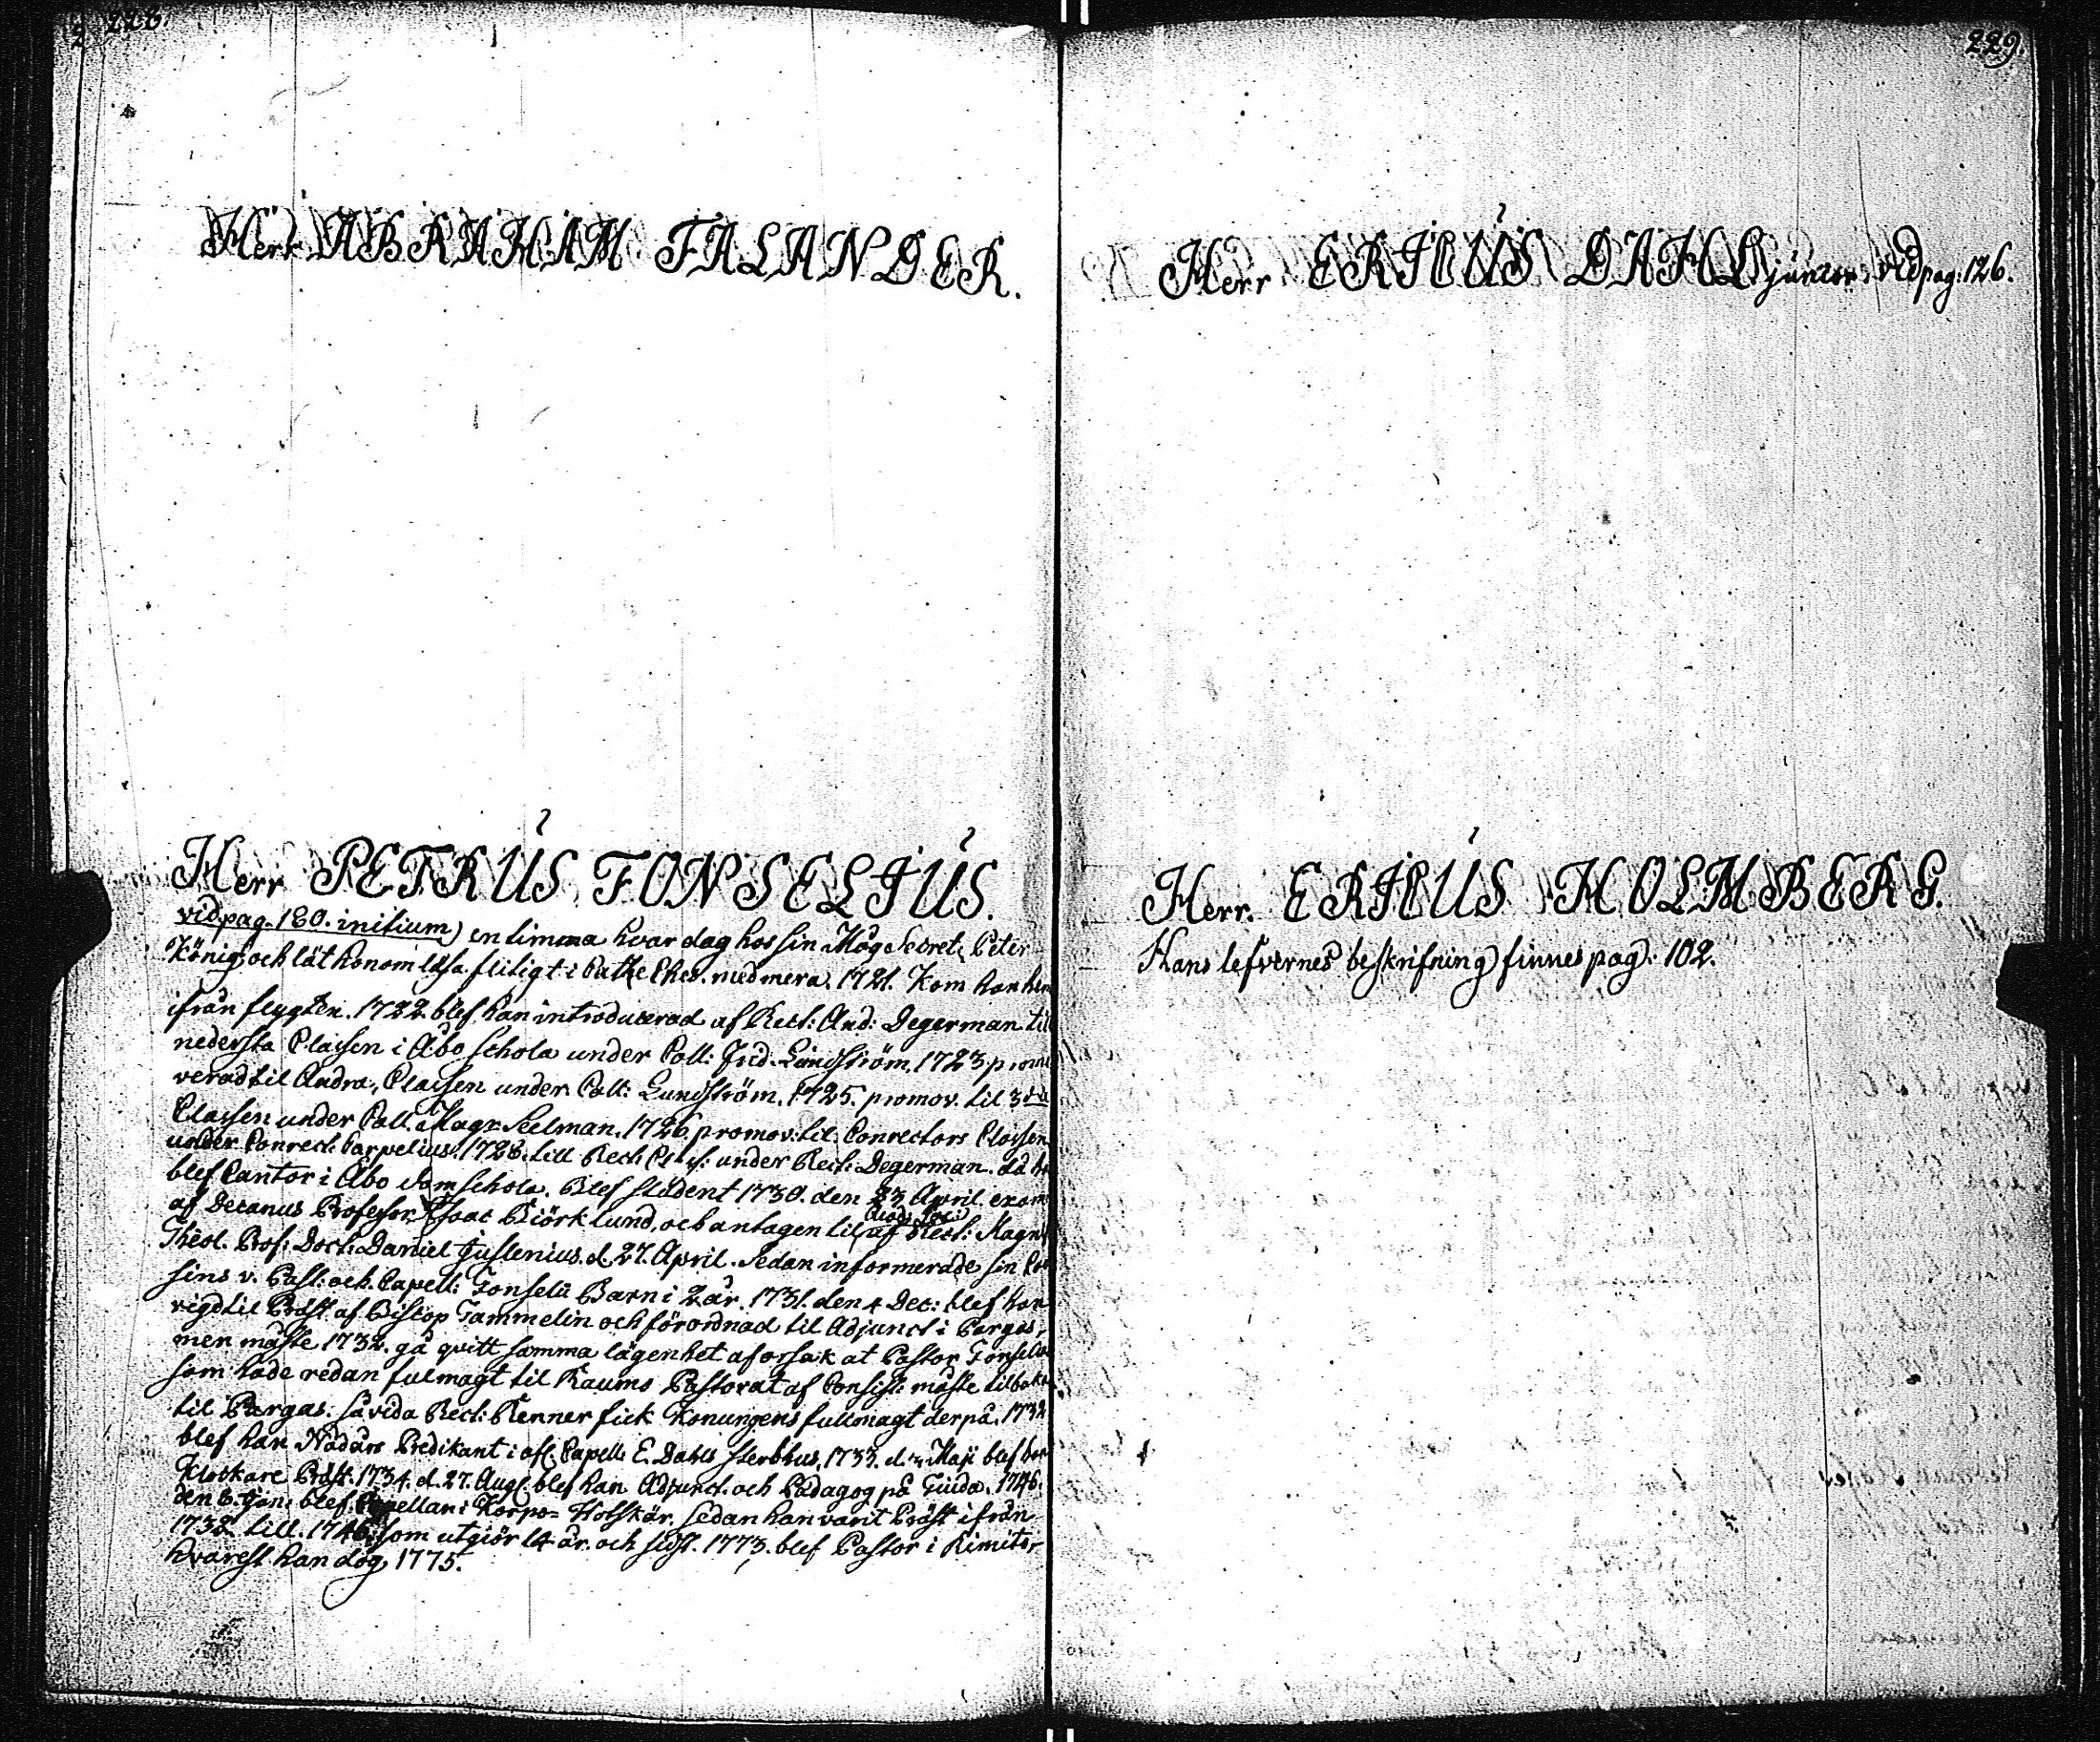 228.
Herr ABRAHAM FALANDER.
Herr PETRUS FONSELIUS.
vid pag. 180. initium) en timma hvar dag hos sin Måg Secret: Peter
König och lät honom läsa flitigt i Cateches. med mera. 1721. Kom han hem
ifrån flygten. 1722 blef han introducerad af Rect: And: Degerman til
nedersta Classen i Åbo schola under Coll: Frid. Lindström, 1723 promo
verad til Andra, Classen under Coll: Lundström. 1725. promov. til 3die
Classen under Coll. Magr Seelman. 1726 promov: til Conrectors Classen
under Conrect: Carpelius. 1728. till Rect: Class: under Rect: Degerman. då han
blef Cantor i Åbo dom schola. Blef student 1730. den 23 April. exam
af Decanus Professor Isaac Biörklund, och antagen til af Rect: Magnif
Theol. Prof: Doct: Daniel Juslenius. d. 27. April. Sedan informerade sin
sins v. Past: och Capell: Fonselii Barn i 2 år. 1731. den 4 Dec: blef han
vigd til Präst af Biskop Gammelin och förordnad til Adjunct i Pargas,
men måste 1732. gå qvitt samma lägenhet af orsak at Pastor Fonselius
som hade redan fulmagt til Raumo Pastorat af Consist: måste tilbaka
til Pargas. såvida Rect: Renner fick Konungens fullmagt derpå. 1732
blef han Nådårs Predikant i afl. Capell: E. Dahls sterbhus, 1733. d. Maji blef han
Klockare Präst. 1734. d. 27. Aug: blef han Adjunct. och Pädagog på Guida. 1746.
den 8. Jan: blef Capellan i Korpo= Hotskär. sedan han varit Präst ifrån
1732 till 1746. som utgiör 14 år. och sidst. 1773. blef Pastor i Kimito,
hvarest han dog 1775.
229.
Herr ERICUS DAHL junior. vid pag: 126.
Herr. ERICUS HOLMBERG.
Hans lefvernes beskrifning finnes pag: 102.